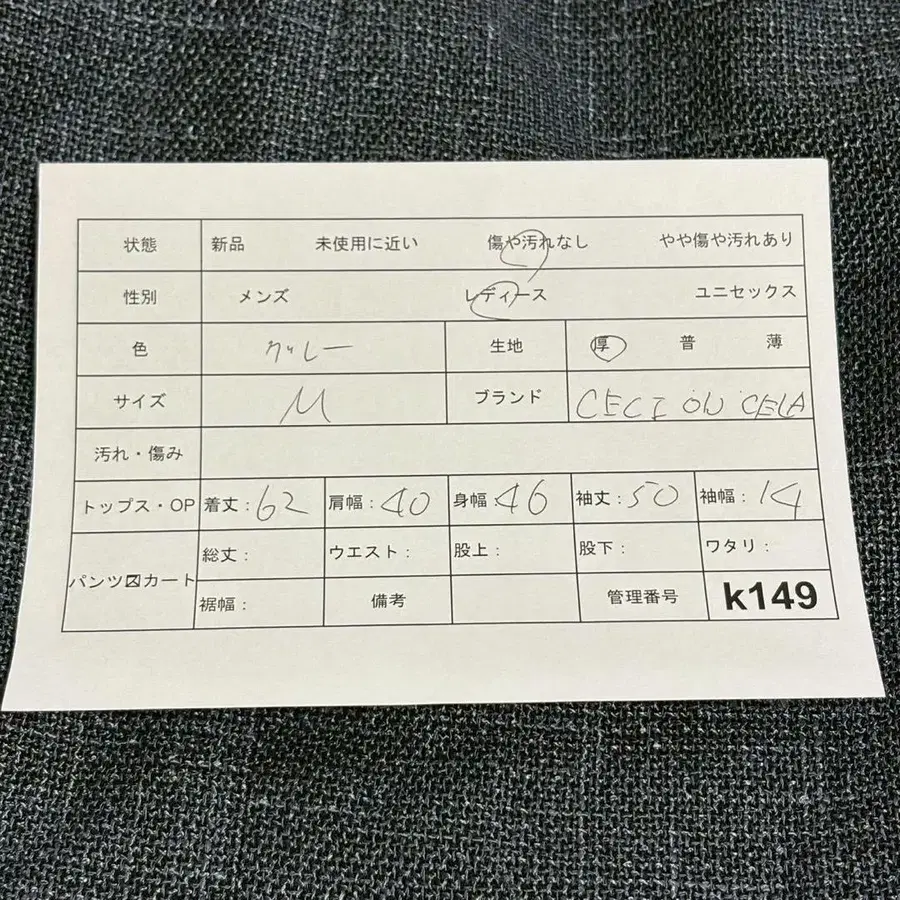 状態 新品 未使用に近い 傷や汚れなし やや傷や汚れあり
性別 メンズ レディース ユニセックス
色 グレー 生地 厚 普 薄
サイズ M ブランド CECI ON CELA
汚れ・傷み
トップス・OP 着丈:62 肩幅:40 身幅:46 袖丈:50 袖幅:14
総丈: ウエスト: 股上: 股下: ワタリ:
パンツ〼カート
裾幅: 備考 管理番号 k149